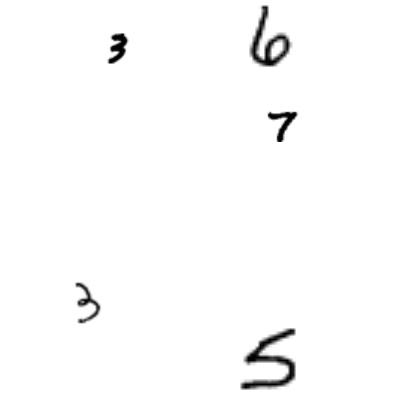 3 6
7
3
5